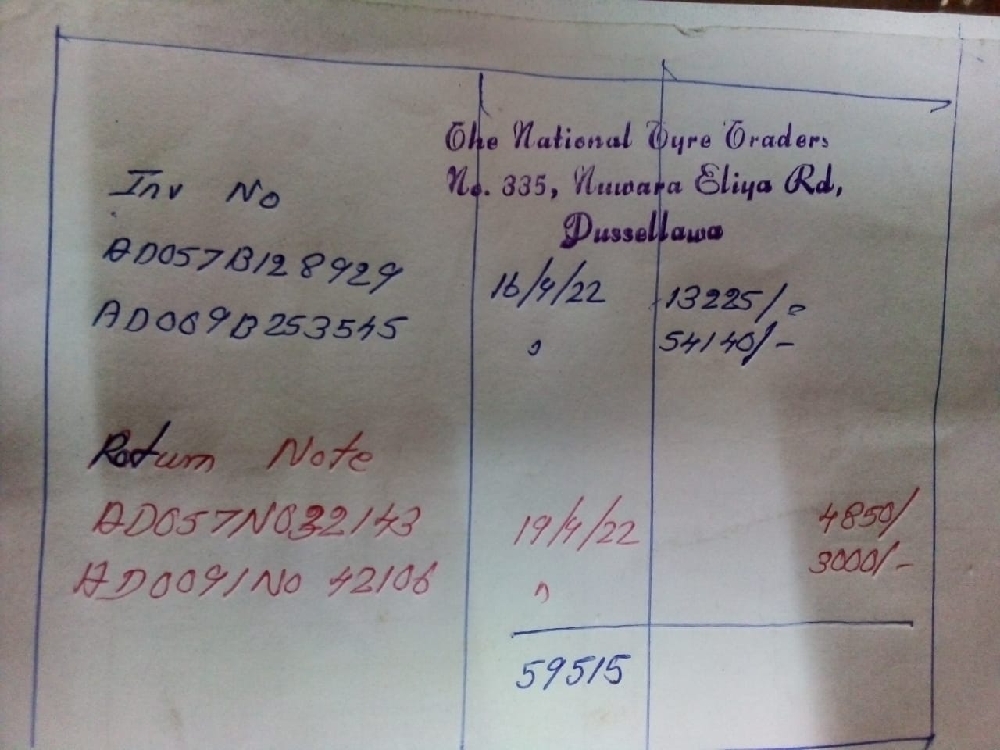 The National Tyre Traders
No. 335, Nuwara Eliya Rd,
Pussellawa
Inv No
AD057B128929 16/4/22 13225/-
AD009B253545 " 54140/-
Return Note
AD057N032143 19/4/22 4850/
AD0091N042106 " 3000/-
59515